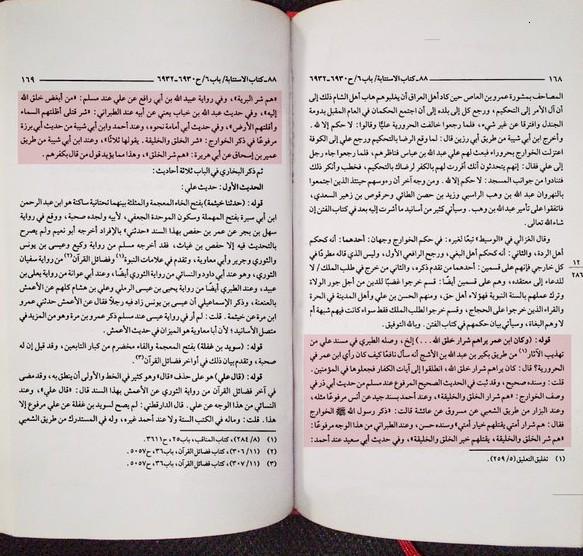 ١٦٨ ٨٨-كتاب الاستتابة/ باب٦/ ح ٦٩٣٠-٦٩٣٢
المصاحف بمشورة عمرو بن العاص حين كاد أهل العراق أن يغلبوهم هاب أهل الشام ذلك إلى
أن آل الأمر إلى التحكيم، ورجع كل إلى بلده إلى أن اجتمع الحكمان في العام المقبل بدومة
الجندل وافترقا عن غير شيء، فلما رجعوا خالفت الحرورية عليًّا وقالوا: لا حكم إلا لله.
وأخرج ابن أبي شيبة من طريق أبي رزين قال: لما وقع الرضا بالتحكيم ورجع علي إلى الكوفة
اعتزلت الخوارج بحروراء فبعث لهم علي عبد الله بن عباس فناظرهم، فلما رجعوا جاء رجل
إلى علي فقال: إنهم يتحدثون أنك أقررت لهم بالكفر لرضاك بالتحكيم، فخطب وأنكر ذلك
فتنادوا من جوانب المسجد: لا حكم إلا لله. ومن وجه آخر أن رءوسهم حينئذ الذين اجتمعوا
بالنهروان عبد الله بن وهب الراسبي وزيد بن حصن الطائي وحرقوص بن زهير السعدي،
فاتفقوا على تأمير عبد الله بن وهب. وسيأتي كثير من أسانيد ما أشرت إليه بعد في كتاب الفتن إن
شاء الله تعالى.
وقال الغزالي في «الوسيط» تبعًا لغيره: في حكم الخوارج وجهان: أحدهما: أنه كحكم
أهل الردة، والثاني: أنه كحكم أهل البغي، ورجح الرافعي الأول، وليس الذي قاله مطردًا في
كل خارجي فإنهم على قسمين: أحدهما من تقدم ذكره، والثاني من خرج في طلب الملك/ لا
للدعاء إلى معتقده، وهم على قسمين أيضًا: قسم خرجوا غضبًا للدين من أجل جور الولاة
وترك عملهم بالسنة النبوية فهؤلاء أهل حق، ومنهم الحسن بن علي وأهل المدينة في الحرة
والقراء الذين خرجوا على الحجاج، وقسم خرجوا لطلب الملك فقط سواء كانت فيهم شبهة أم
لا وهم البغاة، وسيأتي بيان حكمهم في كتاب الفتن. وبالله التوفيق.
١٢
٢٨٦
قوله: (وكان ابن عمر يراهم شرار خلق الله . . .) إلخ، وصله الطبري في مسند علي من
تهذيب الآثار(١) من طريق بكير بن عبد الله بن الأشج أنه سأل نافعًا كيف كان رأي ابن عمر في
الحرورية؟ قال: كان يراهم شرار خلق الله، انطلقوا إلى آيات الكفار فجعلوها في المؤمنين.
قلت: وسنده صحيح، وقد ثبت في الحديث الصحيح المرفوع عند مسلم من حديث أبي ذر في
وصف الخوارج: «هم شرار الخلق والخليقة»، وعند أحمد بسند جيد عن أنس مرفوعًا مثله،
وعند البزار من طريق الشعبي عن مسروق عن عائشة قالت: «ذكر رسول الله ﷺ الخوارج
فقال: هم شرار أمتي يقتلهم خيار أمتي» وسنده حسن، وعند الطبراني من هذا الوجه مرفوعًا:
«هم شر الخلق والخليقة، يقتلهم خير الخلق والخليقة»، وفي حديث أبي سعيد عند أحمد:
(١) تغليق التعليق (٥/ ٢٥٩).
٨٨-كتاب الاستتابة/ باب٦/ ح ٦٩٣٠-٦٩٣٢ ١٦٩
«هم شر البرية»، وفي رواية عبيد الله بن أبي رافع عن علي عند مسلم: «من أبغض خلق الله
إليه»، وفي حديث عبد الله بن خباب يعني عن أبيه عند الطبراني: «شر قتلى أظلتهم السماء
وأقلتهم الأرض»، وفي حديث أبي أمامة نحوه، وعند أحمد وابن أبي شيبة من حديث أبي برزة
مرفوعًا في ذكر الخوارج: «شر الخلق والخليقة. يقولها ثلاثًا»، وعند ابن أبي شيبة من طريق
عمير بن إسحاق عن أبي هريرة: «هم شر الخلق»، وهذا مما يؤيد قول من قال بكفرهم.
ثم ذكر البخاري في الباب ثلاثة أحاديث:
الحديث الأول: حديث علي:
قوله: (حدثنا خيثمة) بفتح الخاء المعجمة والمثلثة بينهما تحتانية ساكنة هو ابن عبد الرحمن
ابن أبي سبرة بفتح المهملة وسكون الموحدة الجعفي، لأبيه ولجده صحبة، ووقع في رواية
سهل بن بحر عن عمر بن حفص بهذا السند «حدثني» بالإفراد أخرجه أبو نعيم ولم يصرح
بالتحديث فيه إلا حفص بن غياث، فقد أخرجه مسلم من رواية وكيع وعيسى بن يونس
والثوري وجرير وأبي معاوية، وتقدم في علامات النبوة(١) وفضائل القرآن(٢) من رواية سفيان
الثوري، وهو عند أبي داود والنسائي من رواية الثوري أيضًا، وعند أبي عوانة من رواية يعلى بن
عبيد، وعند الطبري أيضًا من رواية يحيى بن عيسى الرملي وعلي بن هشام كلهم عن الأعمش
بالعنعنة، وذكر الإسماعيلي أن عيسى بن يونس زاد فيه رجلًا فقال عن الأعمش حدثني عمرو
ابن مرة عن خيثمة. قلت: لم أر في رواية عيسى عند مسلم ذكر عمرو بن مرة وهو من المزيد في
متصل الأسانيد؛ لأن أبا معاوية هو الميزان في حديث الأعمش.
قوله: (سويد بن غفلة) بفتح المعجمة والفاء مخضرم من كبار التابعين، وقد قيل إن له
صحبة، وتقدم بيان ذلك في أواخر فضائل القرآن(٣).
قوله: (قال علي) هو على حذف «قال» وهو كثير في الخط والأولى أن ينطق به، وقد مضى
في آخر فضائل القرآن من رواية الثوري عن الأعمش بهذا السند «قال: قال علي»، وعند
النسائي من هذا الوجه عن علي. قال الدارقطني: لم يصح لسويد بن غفلة عن علي مرفوع إلا
هذا. قلت: وماله في الكتب الستة ولا عند أحمد غيره، وله في المستدرك من طريق الشعبي
(١) (٨/ ٢٨٤)، كتاب المناقب، باب٢٥، ح٣٦١١.
(٢) (١١/ ٣٠٦)، كتاب فضائل القرآن، باب٣٦، ح٥٠٥٧.
(٣) (١١/ ٣٠٧)، كتاب فضائل القرآن، باب٣٦، ح٥٠٥٧.